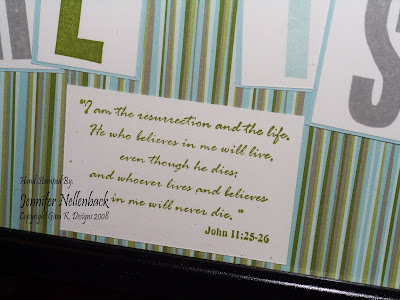 "I am the resurrection and the life.
He who believes in me will live,
even though he dies;
and whoever lives and believes
in me will never die. "
John 11:25-26
Hand Stamped By:
Jennifer Nellenback
Copyright Gina K. Designs 2008